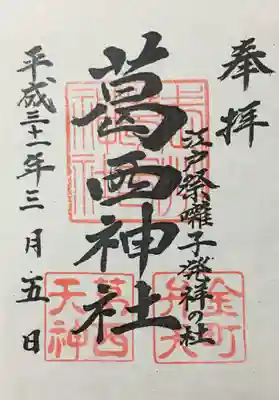 奉拝
江戸祭囃子発祥の社
葛西神社
平成三十一年三月五日
金町
弁天
葛西
天神